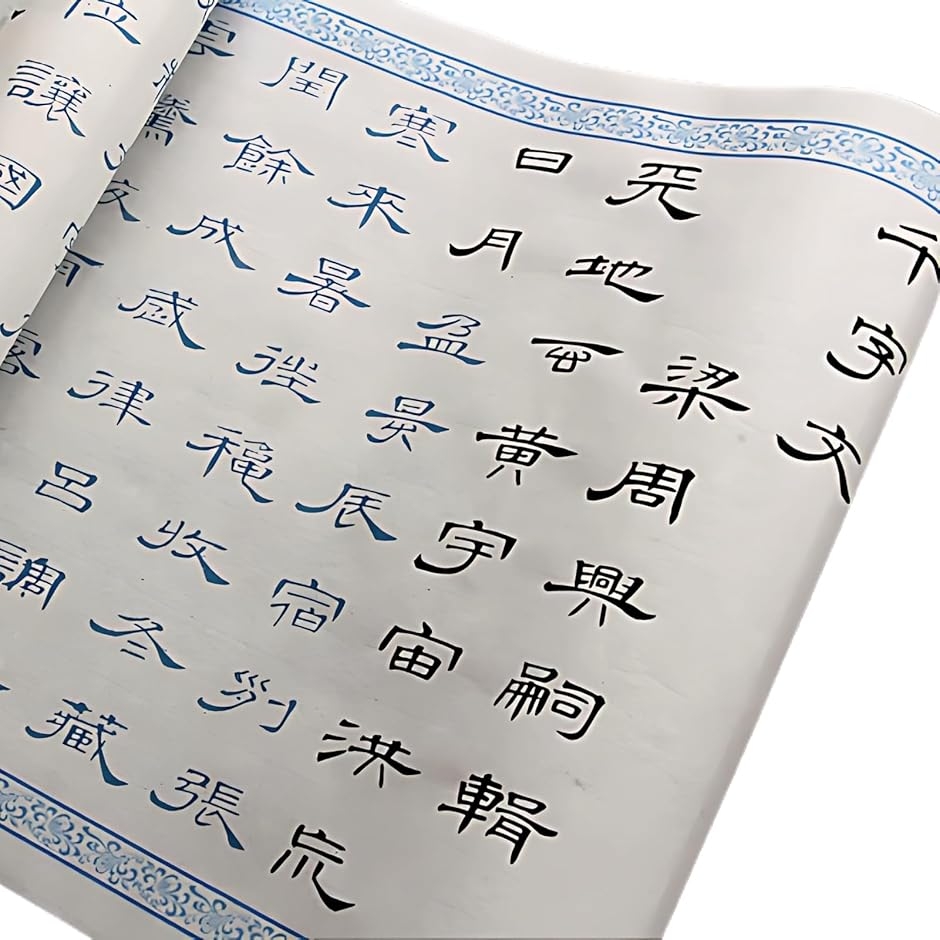 千字文
梁周興嗣輯
天地玄黄宇宙洪荒
日月盈昃辰宿列張
寒來暑往秋收冬藏
閏餘成歲律呂調
雲騰致雨露
位讓國